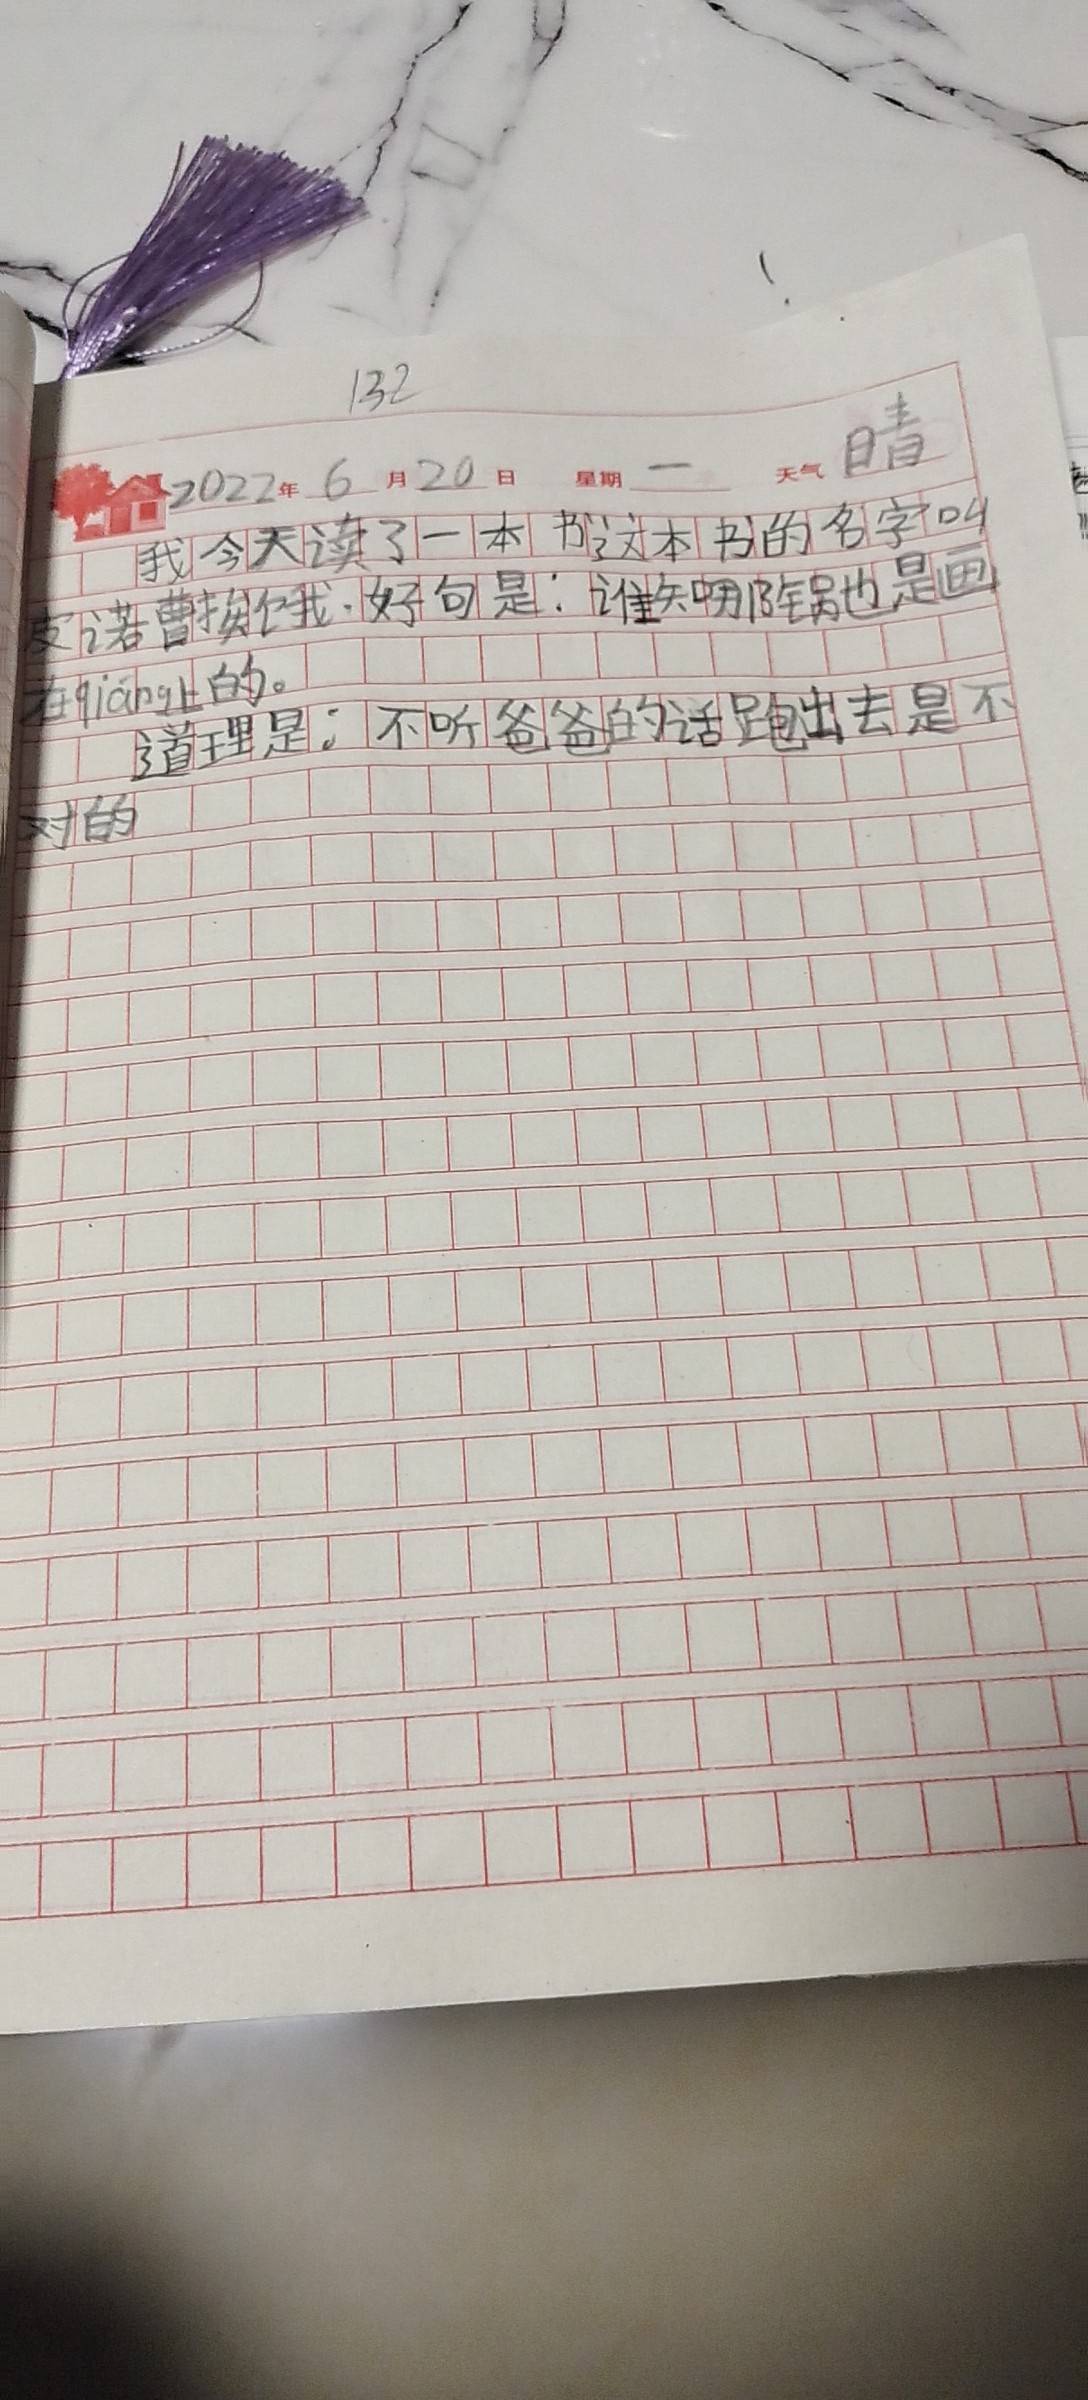 132
2022年 6月20日 星期一 天气 晴
我今天读了一本书这本书的名字叫
皮诺曹挨饿.好句是:谁知哪阵锅也是画
在qiáng上的。
道理是:不听爸爸的话跑出去是不
对的